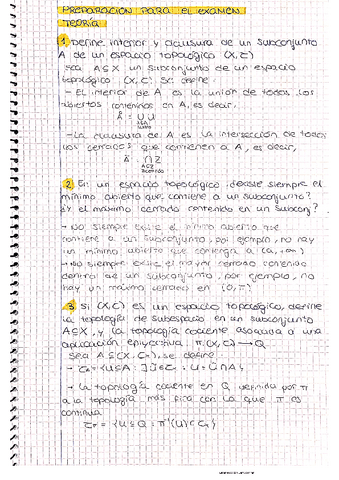 PREPARACIÓN PARA EL EXAMEN
TEORÍA
1 Define interior y clausura de un subconjunto
A de un espacio topológico (X,τ)
Sea A⊆X un subconjunto de un espacio
topológico (X,τ). Se define:
- El interior de A es la unión de todos los
abiertos contenidos en A, es decir,
Å = ∪U
U⊆A
- La clausura de A es la intersección de todos
los cerrados que contienen a A, es decir,
∩Z
A⊆Z
Z cerrado
2 En un espacio topológico ¿existe siempre el
mínimo abierto que contiene a un subconjunto?
¿Y el máximo cerrado contenido en un subconj?
- No siempre existe el mínimo abierto que
contiene a un subconjunto, por ejemplo, no hay
un mínimo abierto que contenga a
- No siempre existe el mayor cerrado contenido
dentro de un subconjunto, por ejemplo, no
hay un máximo cerrado en
3 Si (X,τ) es un espacio topológico, define
la topología de subespacio en un subconjunto
A⊆X, y la topología cociente asociada a una
aplicación epiyectiva π:(X,τ)→Q
Sea A⊆(X,τ), se define
- La topología cociente en Q definida por π
a la topología más fina con la que π es
continua